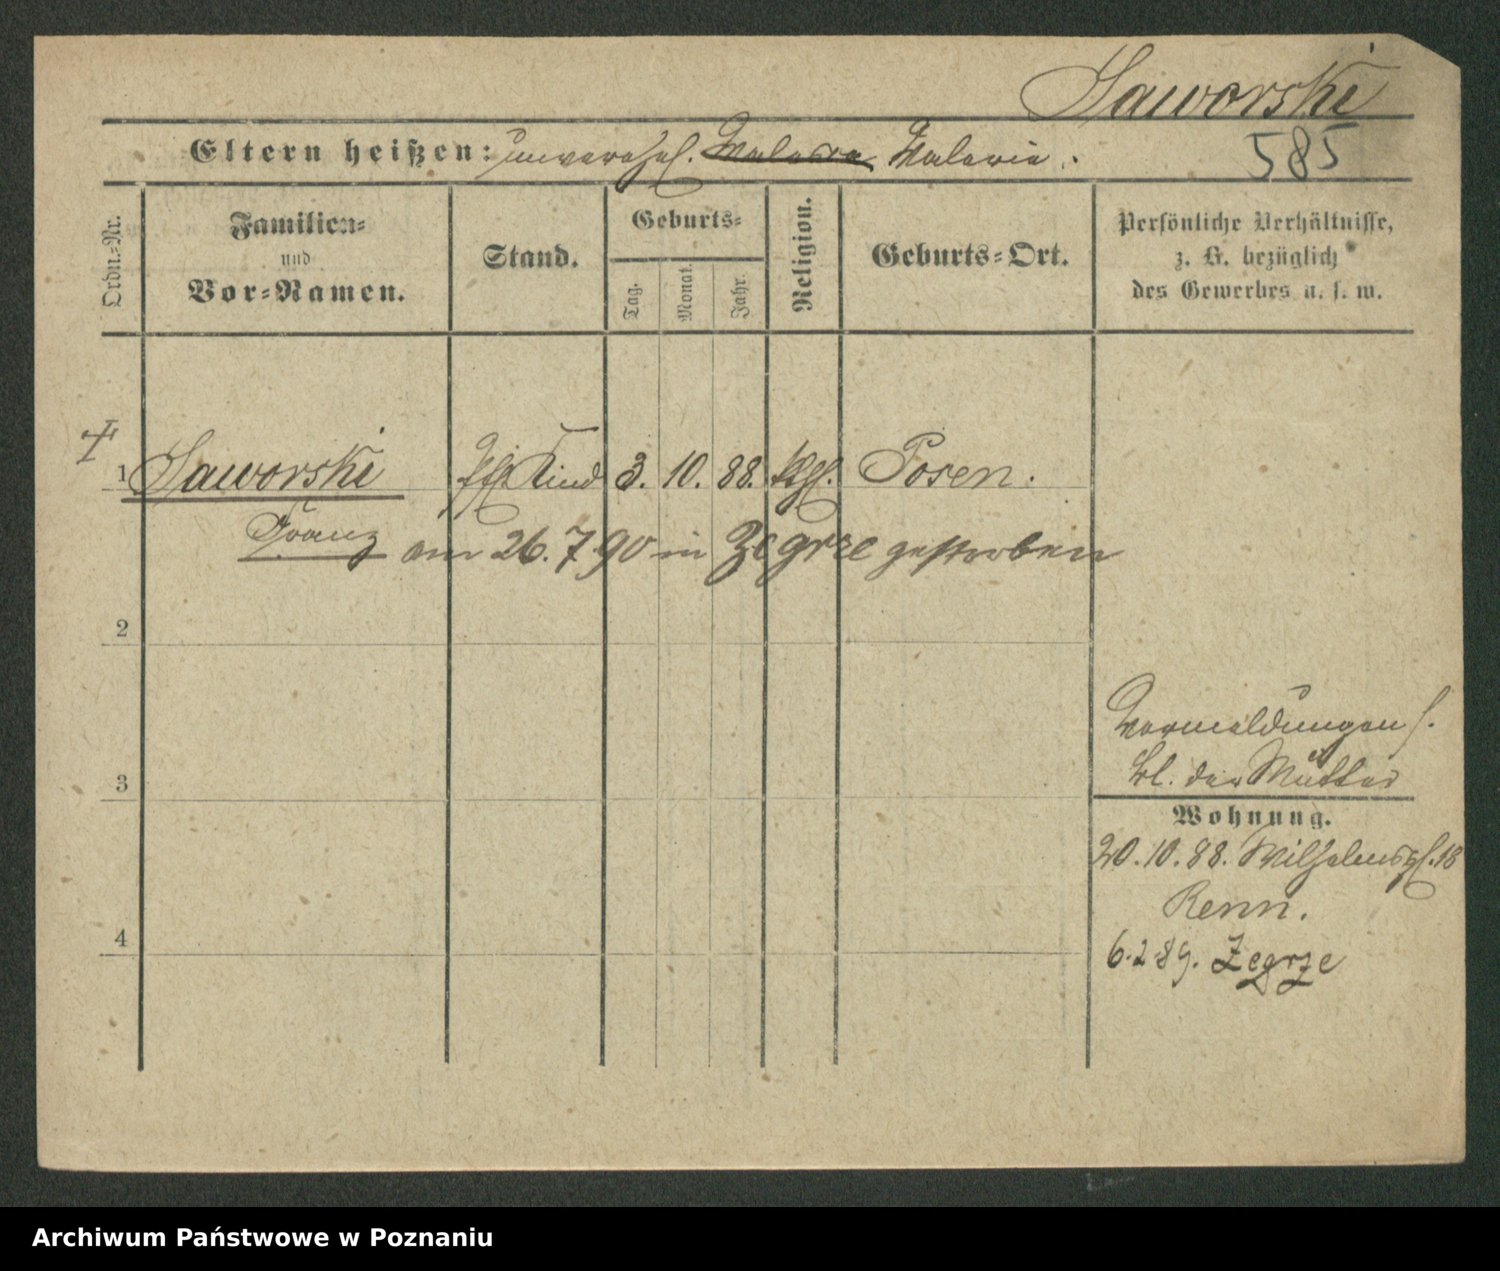 Jaworski
Eltern heißen: unverehel. Valeria.
585
Ordn.-Nr.
Familien-
und
Vor-Namen.
Stand.
Geburts-
Tag.
Monat.
Jahr.
Religion.
Geburts-Ort.
Persönliche Verhältnisse,
z. B. bezüglich
des Gewerbes u. s. w.
1 Jaworski Kind 3. 10. 88. kth. Posen.
Franz am 26. 7. 90 in Zegrze gestorben
2
3
4
Vermeldungen s.
Bl. der Mutter
Wohnung.
20. 10. 88. Wilhelmspl. 18
Renn.
6. 2 89. Zegrze
Archiwum Państwowe w Poznaniu